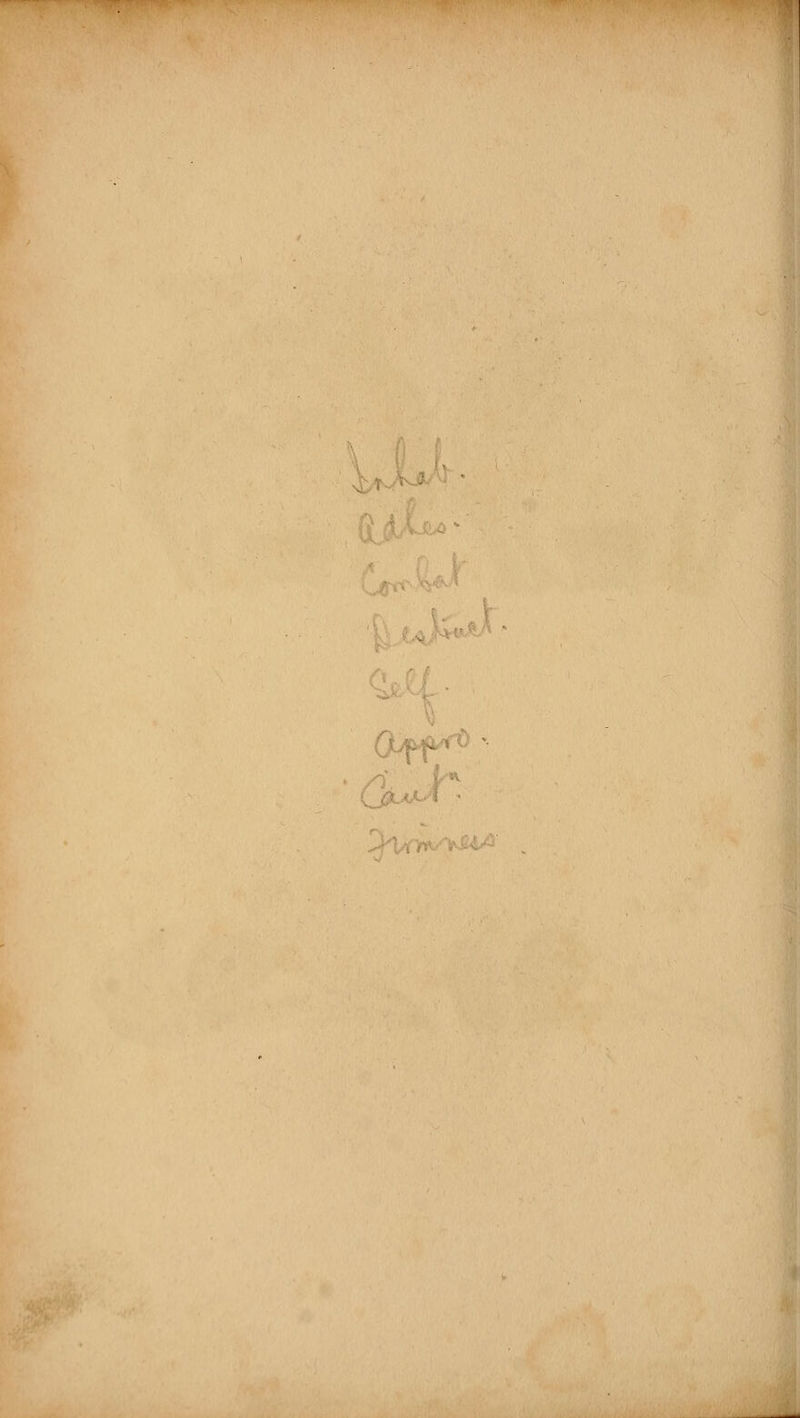 Inhab.
Adhes.
Combat
Destruct.
Self.
Appro.
Caut.
Firmness.